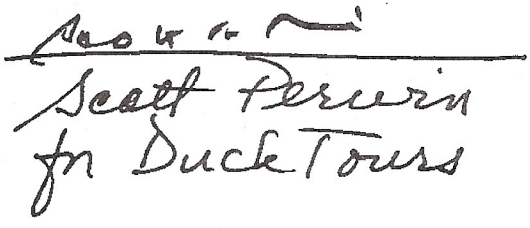 Scott Perwin
for Duck Tours